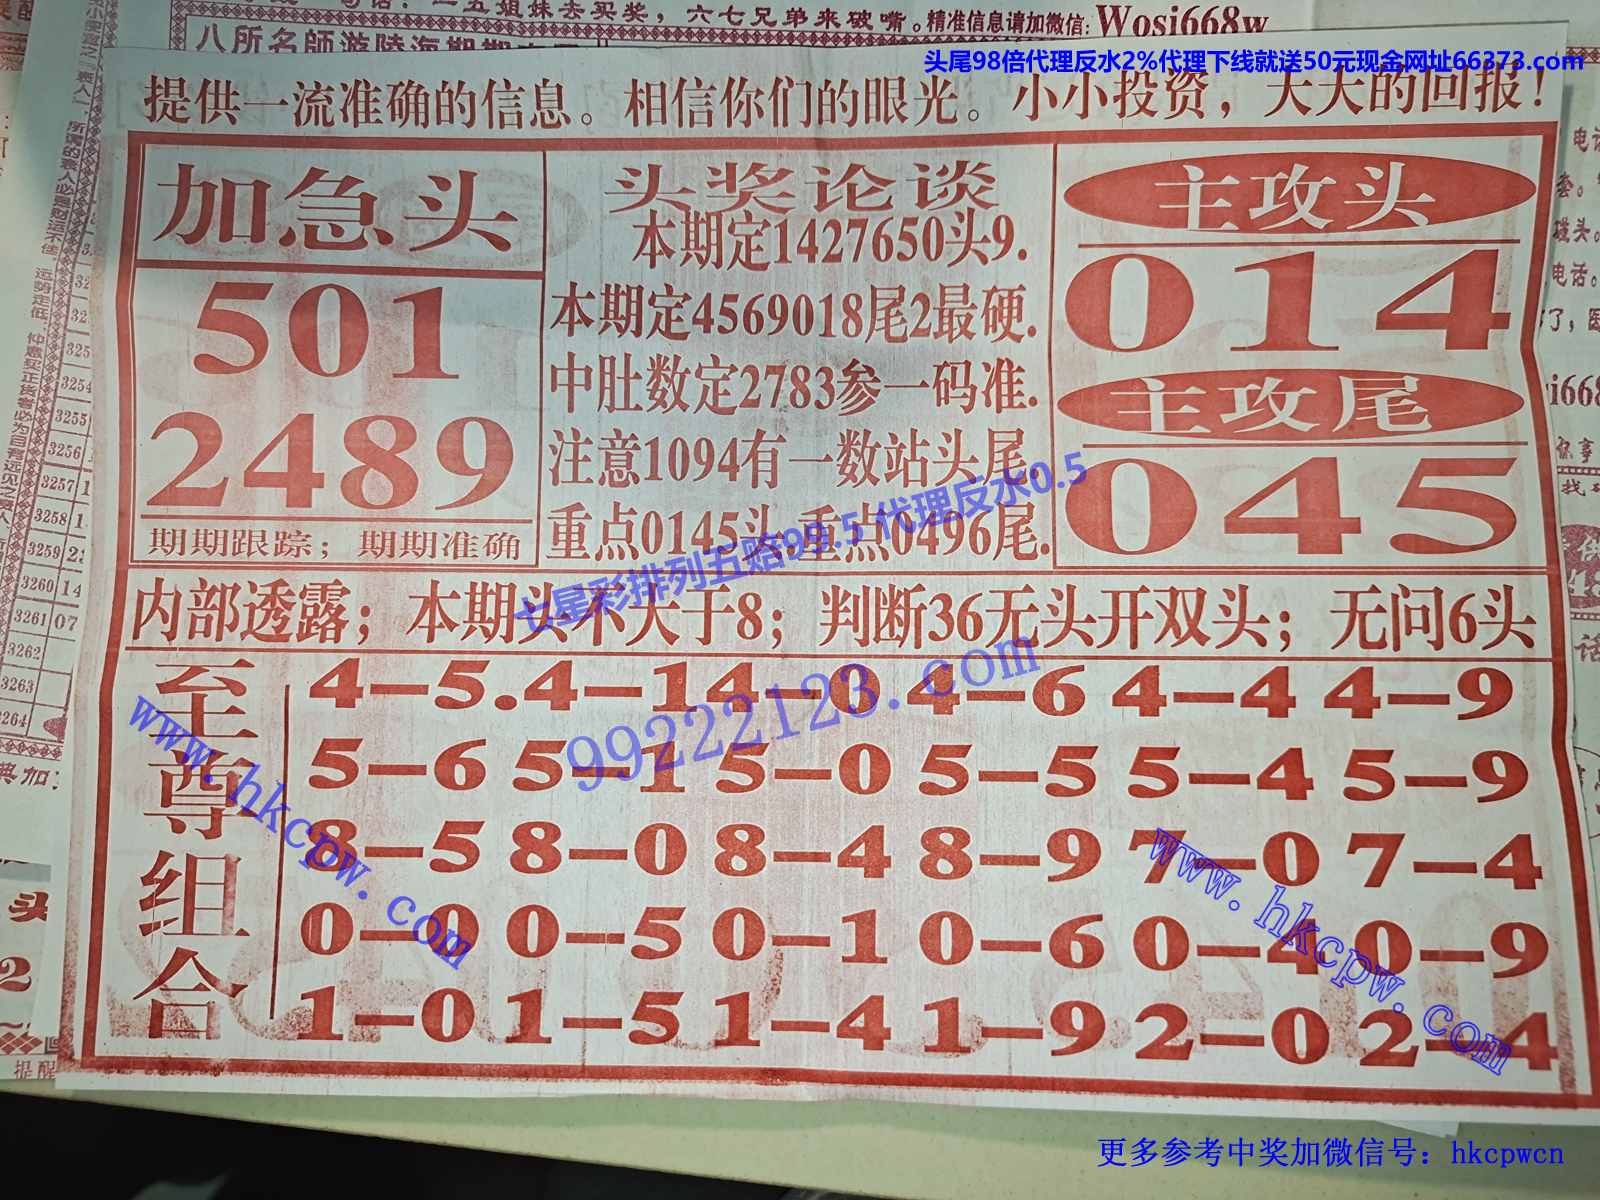 一句话：一五姐妹去买奖，六七兄弟来破嘴。精准信息请加微信：Wosi668w
头尾98倍代理反水2%代理下线就送50元现金网址66373.com
提供一流准确的信息。相信你们的眼光。小小投资，大大的回报！
加急头
501
2489
期期跟踪；期期准确
头奖论谈
本期定1427650头9.
本期定4569018尾2最硬.
中肚数定2783参一码准.
注意1094有一数站头尾.
重点0145头.重点0496尾.
主攻头
014
主攻尾
045
七星彩排列五赔99.5 代理反水0.5
内部透露；本期头不大于8；判断36无头开双头；无问6头
99222123.com
至尊组合
4–5.4–14–0 4–6 4–4 4–9
5–6 5–1 5–0 5–5 5–4 5–9
8–5 8–0 8–4 8–9 7–0 7–4
0–0 0–5 0–1 0–6 0–4 0–9
1–0 1–5 1–4 1–9 2–0 2–4
www.hkcpw.com
www.hkcpw.com
3254
3255
3256
3257
3258
3259
3260 14
3261 07
3262
3263
3264
更多参考中奖加微信号：hkcpwcn